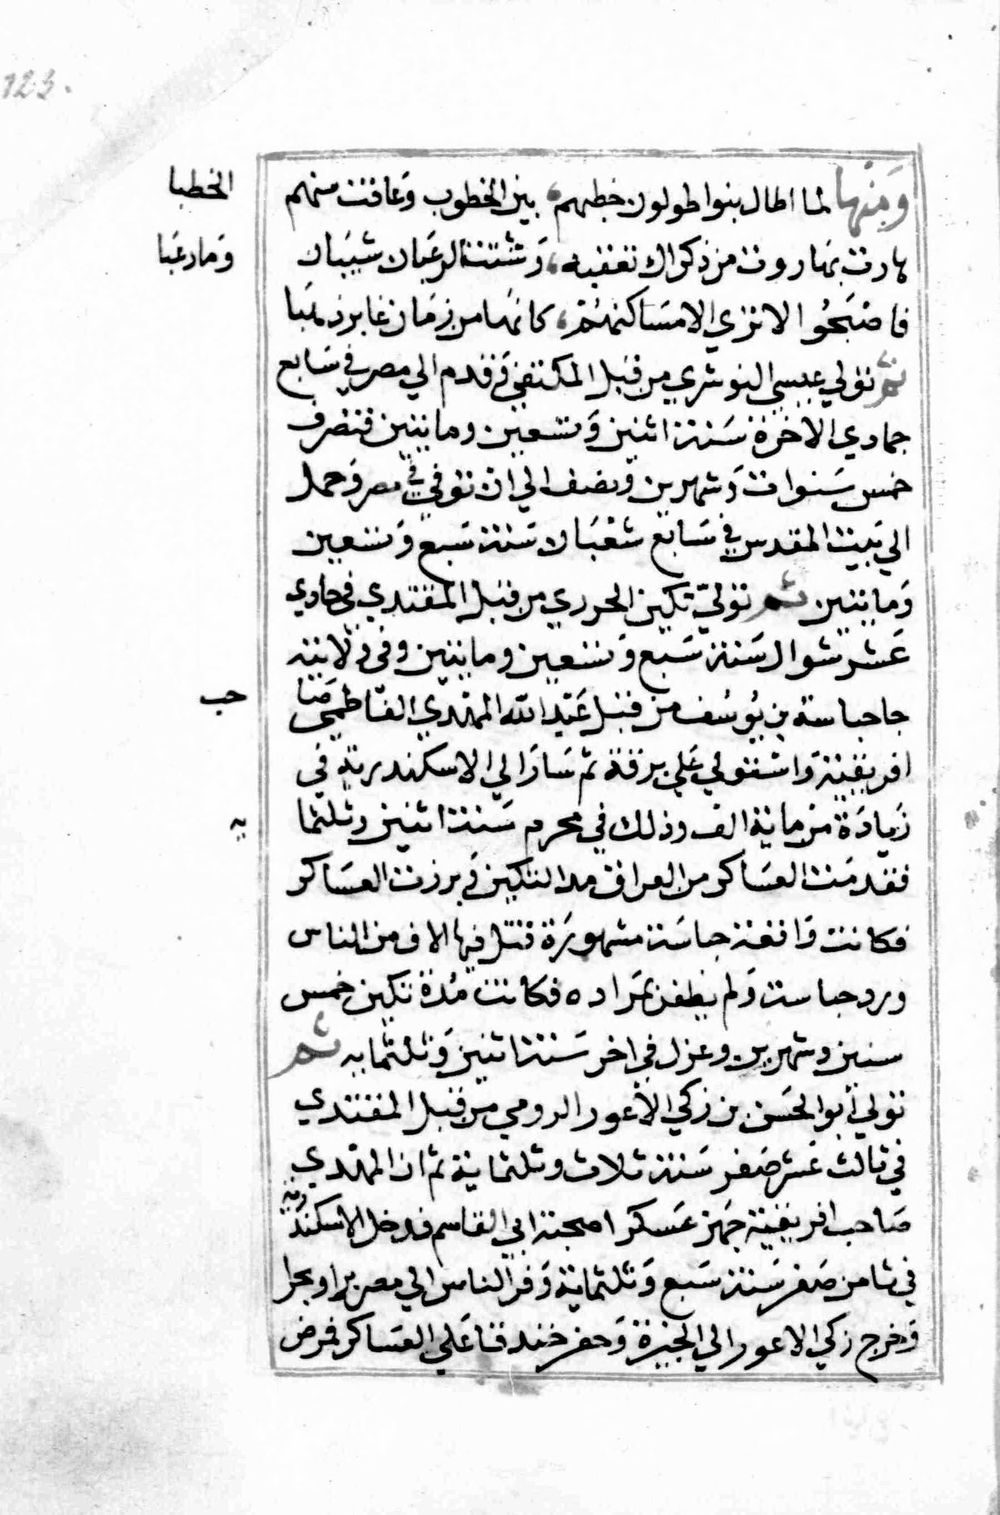 123.
ومنها لما اطال بنوا طولون خطبهم، بين الخطوب وعاقت منهم الخطبا
هارت بهاروت من ذكراك تقفيه، وشتت الرعبان شيبان وما رعبا
فاصبحوا لا تري الا مساكنهم، كانها من زمان غابر ذهبا
ثم تولي عيسي النوشري من قبل المكتفي فقدم الي مصر في سابع
جمادي الاخرة سنة اثنين وتسعين ومايتين فتصرف
خمس سنوات وشهرين ونصف الي ان توفي في مصر وحمل
الي بيت المقدس في سابع شعبان سنة سبع وتسعين
ومايتين ثم تولي تكين الحرري من قبل المقتدي في حادي
عشر شوال سنة سبع وتسعين ومايتين وفي ولايته
جا حباسة بن يوسف من قبل عبد الله المهدي الفاطمي صاحب
افريقية واستولي علي برقة ثم سار الي الاسكندرية في
زيادة من ماية الف وذلك في محرم سنة اثنين وثلثمايه
فقدمت العساكر من العراق مددا لتكين وبرزت العساكر
فكانت واقعة حباسة مشهورة قتل فيها الاف من الناس
ورد حباسة ولم يظفر بمراده فكانت مدة تكين خمس
سنين وشهرين وعزل في اخر سنة اثنين وثلثمايه ثم
تولي ابو الحسن بن زكي الاعور الرومي من قبل المقتدي
في ثالث عشر صفر سنة ثلاث وثلثماية ثم ان المهدي
صاحب افريقية جهز عسكرا صحبة ابي القاسم فدخل الاسكندرية
في ثامن صفر سنة سبع وثلثماية وفر الناس الي مصر برا وبحرا
وخرج زكي الاعور الي الجيزة وحفر خندقا علي العساكر فمرض